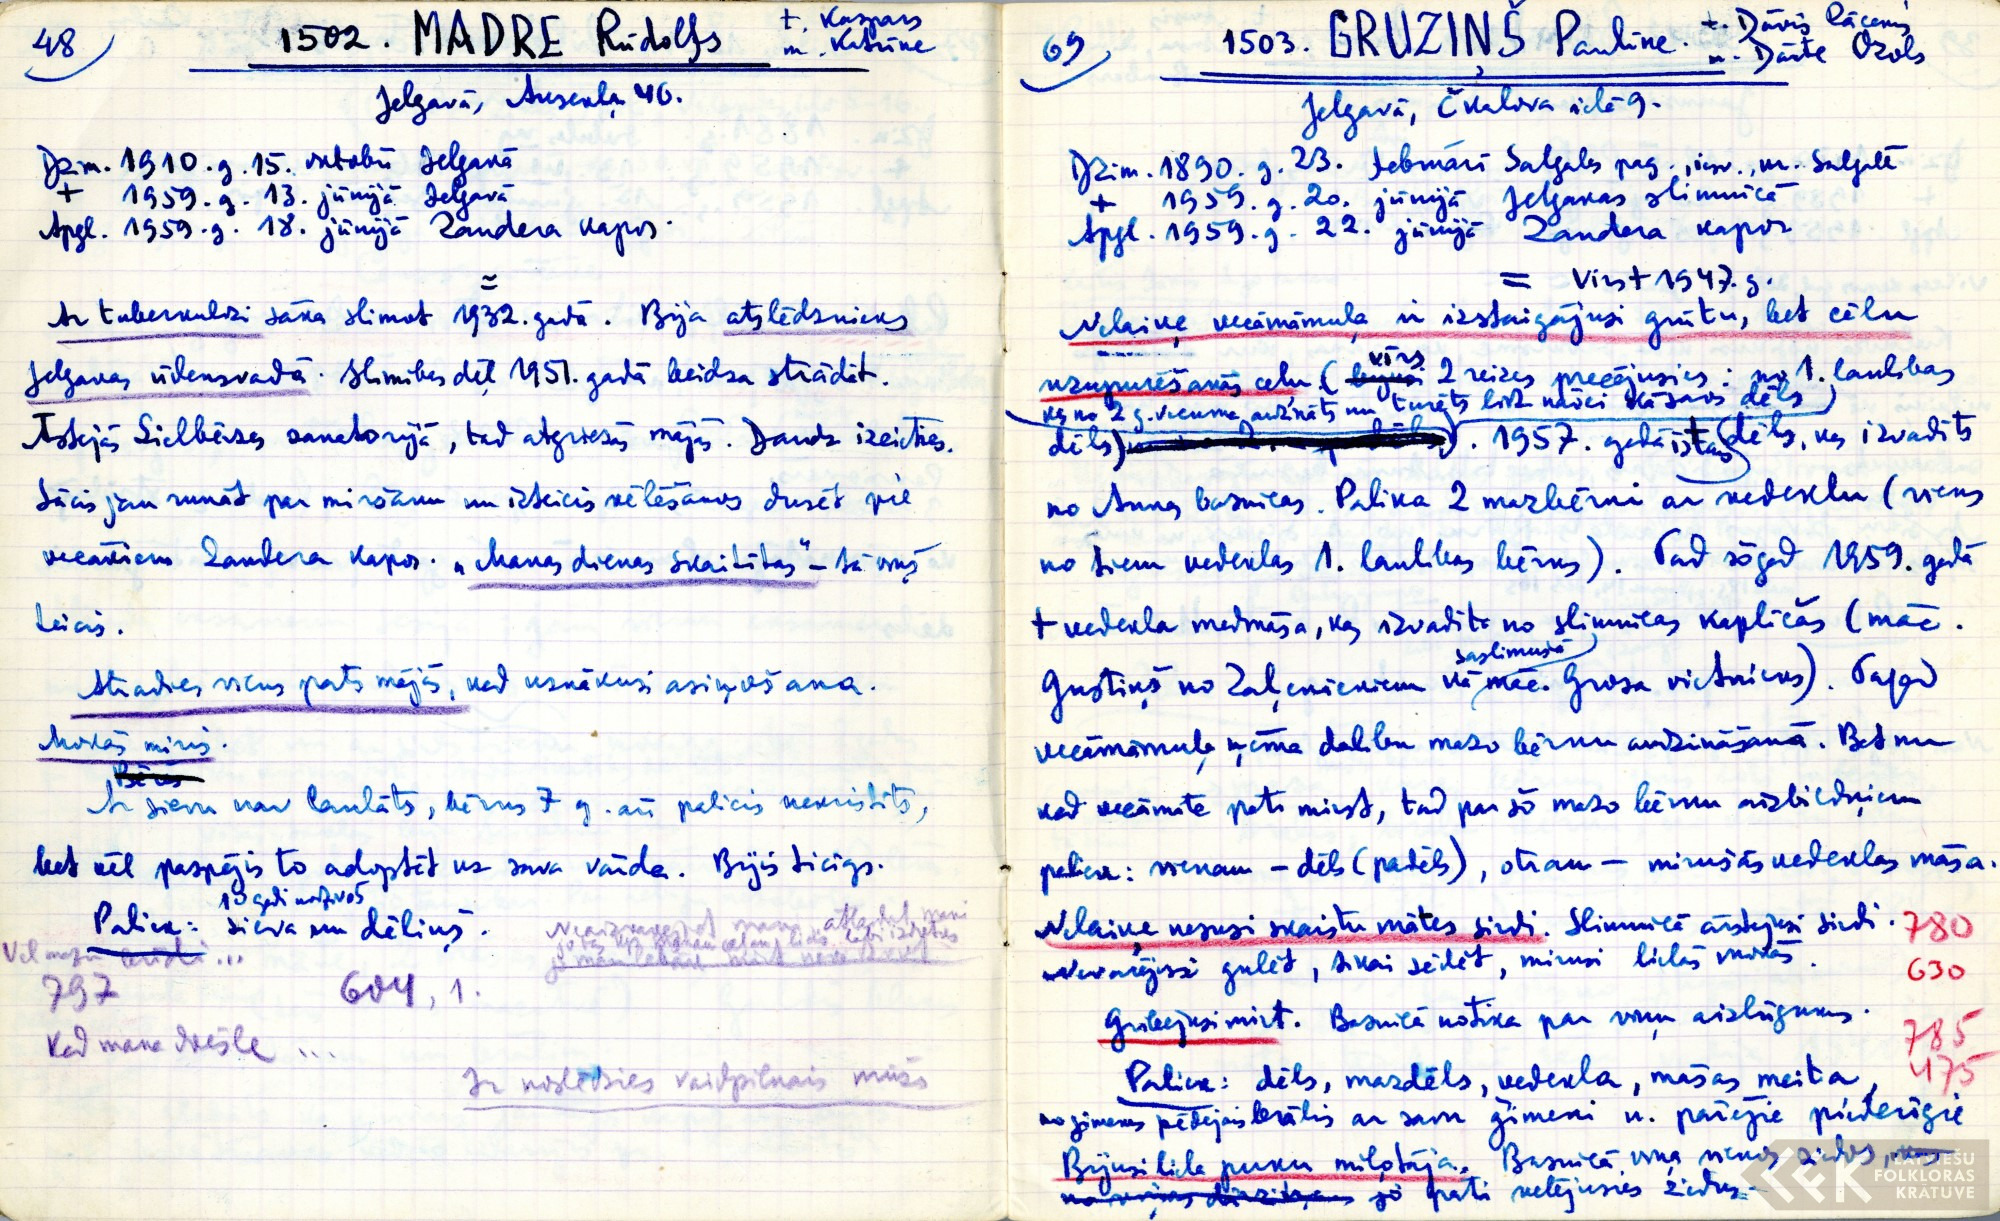 48
1502. MADRE Rūdolfs
t. Kaspars
m. Katrīne
Jelgavā, Ausekļa 40.
Dzim. 1910. g. 15. oktobrī Jelgavā
+ 1959. g. 13. jūnijā Jelgavā
Apgl. 1959. g. 18. jūnijā Zandera kapos.
=
Ar tuberkulozi sāka slimot 1932. gadā. Bija atslēdznieks
Jelgavas ūdensvadā. Slimības dēļ 1951. gadā beidza strādāt.
Ārstējās Lielbērzes sanatorijā, tad atgriezās mājās. Daudz izcieties.
Sācis jau runāt par miršanu un izteicis vēlēšanos dusēt pie
vecākiem Zandera kapos. „Manas dienas skaitītas" – tā viņš
teicis.
Atradies viens pats mājās, kad uznākusi asiņošana.
Mokās miris.
Bēres
Ar sievu nav laulāts, bērns 7 g. arī palicis nekristīts,
bet vēl paspējis to adoptēt uz sava vārda. Bijis ticīgs.
13 gadi nodzīvoš
Paliek: sieva un dēliņš.
Vēl mazu brīdi...
797 604, 1.
Kad mana dvēsle ...
Ir noslēdzies vaidpilnais mūžs
69
1503. GRUZIŅŠ Pauline.
t. Dāvis Lācenis
m. Dārte Ozols
Jelgavā, Čkalova ielā 9.
Dzim. 1890. g. 23. februārī Salgales pag., iesv., kr. Salgalē
+ 1959. g. 20. jūnijā Jelgavas slimnīcā
Apgl. 1959. g. 22. jūnijā Zandera kapos
= Vīrs + 1947. g.
Nelaiķe vecāmāmuļa ir izstaigājusi grūtu, bet cēlu
uzupurēšanās ceļu. (vīrs 2 reizes precējusies: no 1. laulības
kas no 2 g. vecuma audzināts un turēts līdz nāvei kā savs dēls
dēls). 1957. gadā + īstais dēls, kas izvadīts
no Annas baznīcas. Palika 2 mazbērni ar vedeklu (viens
no tiem vedeklas 1. laulības bērns). Tad šogad 1959. gadā
+ vedekla medmāsa, kas izvadīta no slimnīcas kapličas (māc.
Gustiņš no Zaļeniekiem kā saslimušā māc. Grosa vietnieks). Tagad
vecāmāmuļa ņēma dalību mazo bērnu audzināšanā. Bet nu
kad vecāmāte pati mirst, tad par šo mazo bērnu aizbildņiem
paliek: vienam – dēls (padēls), otram – mirušās vedeklas māsa.
Nelaiķe nesusi skaistu mātes sirdi. Slimnīcā ārstējusi sirdi. 780
Nevarējusi gulēt, tikai sēdēt, mirusi lielās mokās. 630
Gribējusi mirt. Baznīcā notika par viņu aizlūgums.
785
Paliek: dēls, mazdēls, vedekla, māsas meita, 475
no ģimenes pēdējais brālis ar savu ģimeni u. pārējie piederīgie
Bijusi liela puķu mīļotāja. Baznīcā viņa nesos ziedos,
jo pati vēlējusies ziedus.
LATVIEŠU
FOLKLORAS
KRĀTUVE